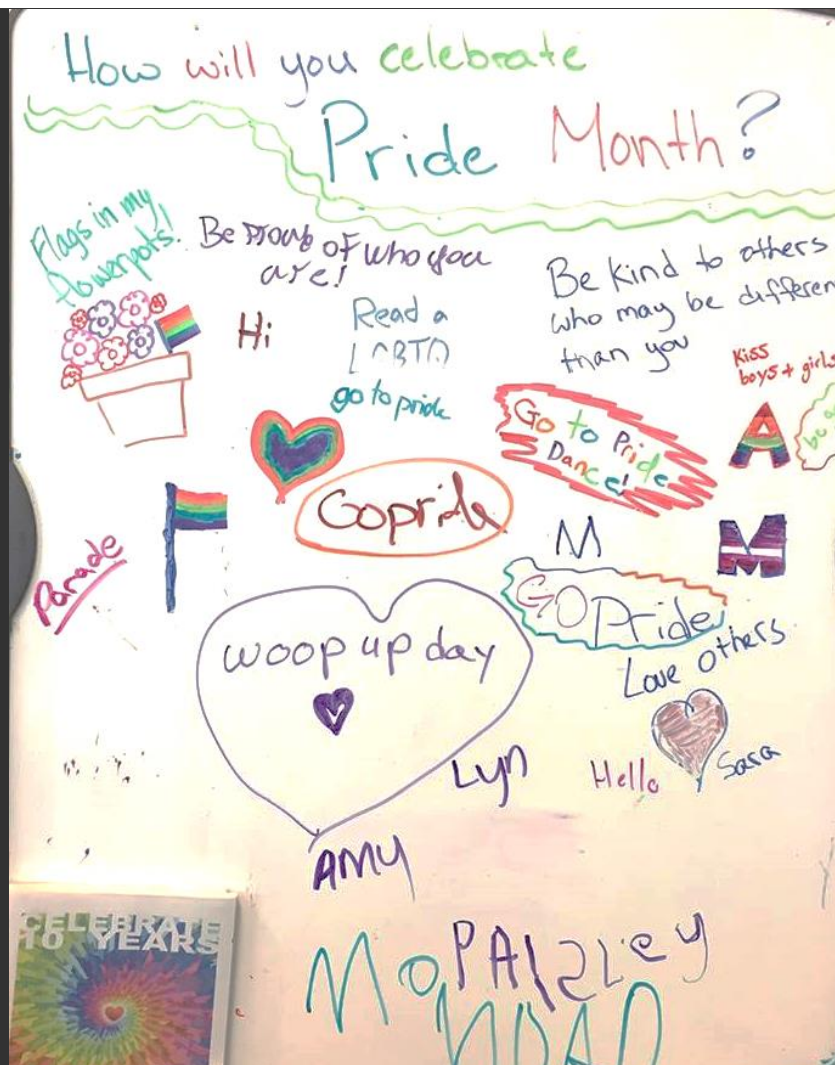 How will you celebrate
Pride Month?
Flags in my
flowerpots!
Be Proub of who you
are!
Be kind to others
who may be differen
than you
Hi
Read a
LGBTQ
go to pride
Kiss
boys + girls
Go to Pride
Dance!
A
Gopride
M
M
Parade
GO Pride
woop up day
Love others
Lyn
Hello
Sara
AMY
CELEBRATE
10 YEARS
Mo
PAISLey